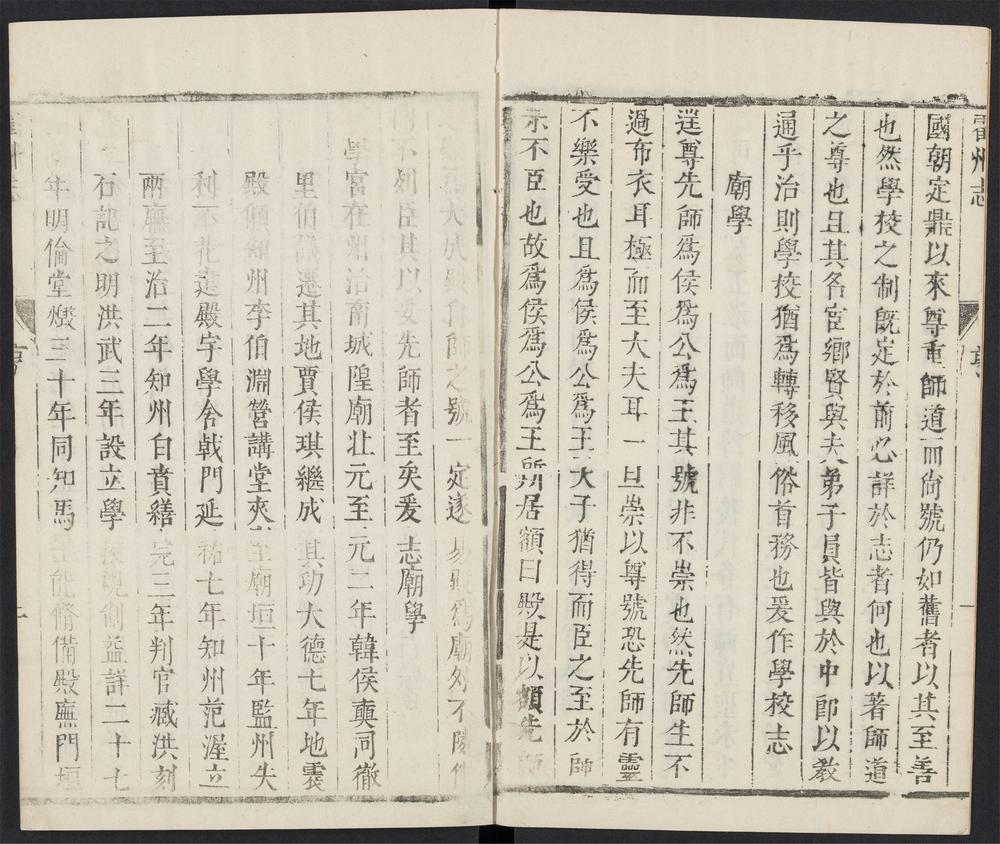 霍州志
國朝定鼎以來尊重師道而尙號仍如舊者以其至善
也然學校之制旣定於前必詳於志者何也以著師道
之尊也且其名宦鄉賢與夫弟子員皆與於中卽以敎
通乎治則學校猶爲轉移風俗首務也爰作學校志
廟學
逞尊先師爲侯爲公爲王其號非不崇也然先師生不
過布衣耳極而至大夫耳一旦崇以尊號恐先師有靈
不樂受也且爲侯爲公爲王天子猶得而臣之至於師
未不臣也故爲侯爲公爲王所居額曰殿是以額先師
大成 師之號一定遂易殿爲廟 不
不 臣其以安先師者至矣爰志廟學
學宮在州治南城隍廟北元至元二年韓侯 同徹
里伯 遷其地賈侯琪繼成其功大德七年地震
殿傾 州李伯淵營講堂 至廟垣十年監州失
利不花建殿宇學舍戟門延祐七年知州范渥立
兩廡至治二年知州白賁繕完三年判官臧洪刻
石記之明洪武三年設立學 規制益詳二十七
年明倫堂燬三十年同知馬 能脩備殿廡門垣